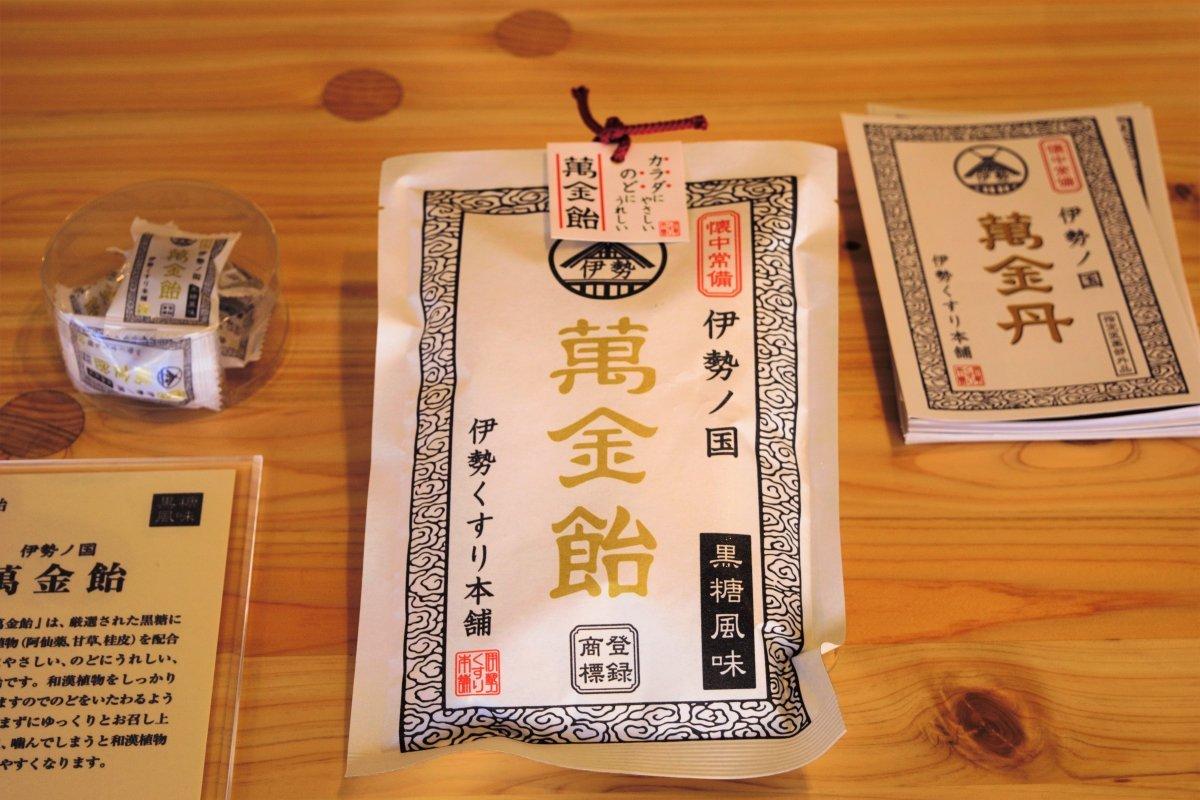 萬金飴
カラダにやさしい
のどにうれしい
伊勢
懐中常備
伊勢ノ国
萬金飴
黒糖風味
伊勢くすり本舗
登録
商標
伊勢
くすり
本舗
伊勢
懐中常備
伊勢ノ国
萬金丹
指定医薬部外品
伊勢くすり本舗
伊勢ノ国
萬金飴
伊勢くすり本舗
黒糖
風味
伊勢ノ国
萬金飴
萬金飴」は、厳選された黒糖に
植物(阿仙薬、甘草、桂皮)を配合
やさしい、のどにうれしい、
です。和漢植物をしっかり
ますのでのどをいたわるよう
まずにゆっくりとお召し上
、噛んでしまうと和漢植物
やすくなります。